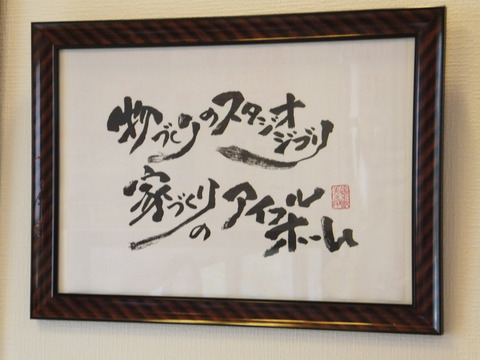 物づくりのスタジオ
ジブリ
家づくりの
アイフル
ホーム